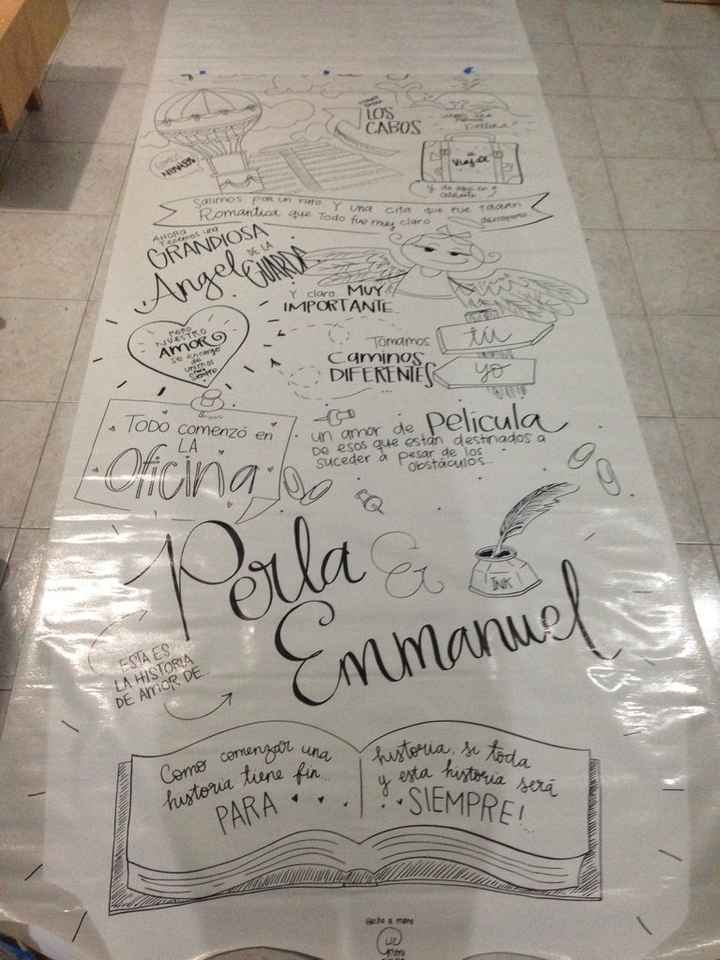 LOS
CABOS
Viaje
Salimos por un rato y una cita que fue
Romantica que Todo fue muy claro
AHORA
GRANDIOSA
Angel DE LA
GUARDA
Y claro MUY
IMPORTANTE
PERO
NUESTRO
AMOR
se encargó
de
unirnos
Tomamos
Caminos
DIFERENTES
tú
yo
TODO comenzó en
LA
Oficina
un amor de Película
De esos que están destinados a
suceder a pesar de los
obstáculos...
Perla &
Emmanuel
INK
ESTA ES
LA HISTORIA
DE AMOR DE
Como comenzar una
historia tiene fin...
PARA
historia, si toda
y esta historia será
SIEMPRE!
Hecho a mano